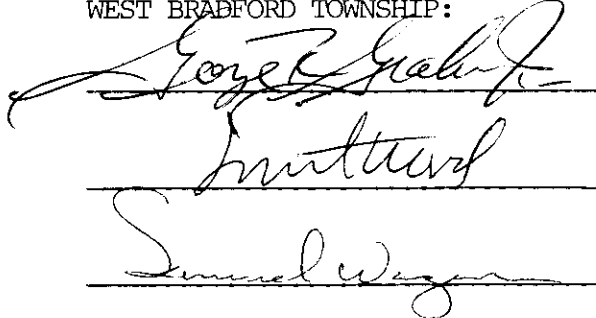 WEST BRADFORD TOWNSHIP:
George R. Graham Jr.
Samuel Wagner